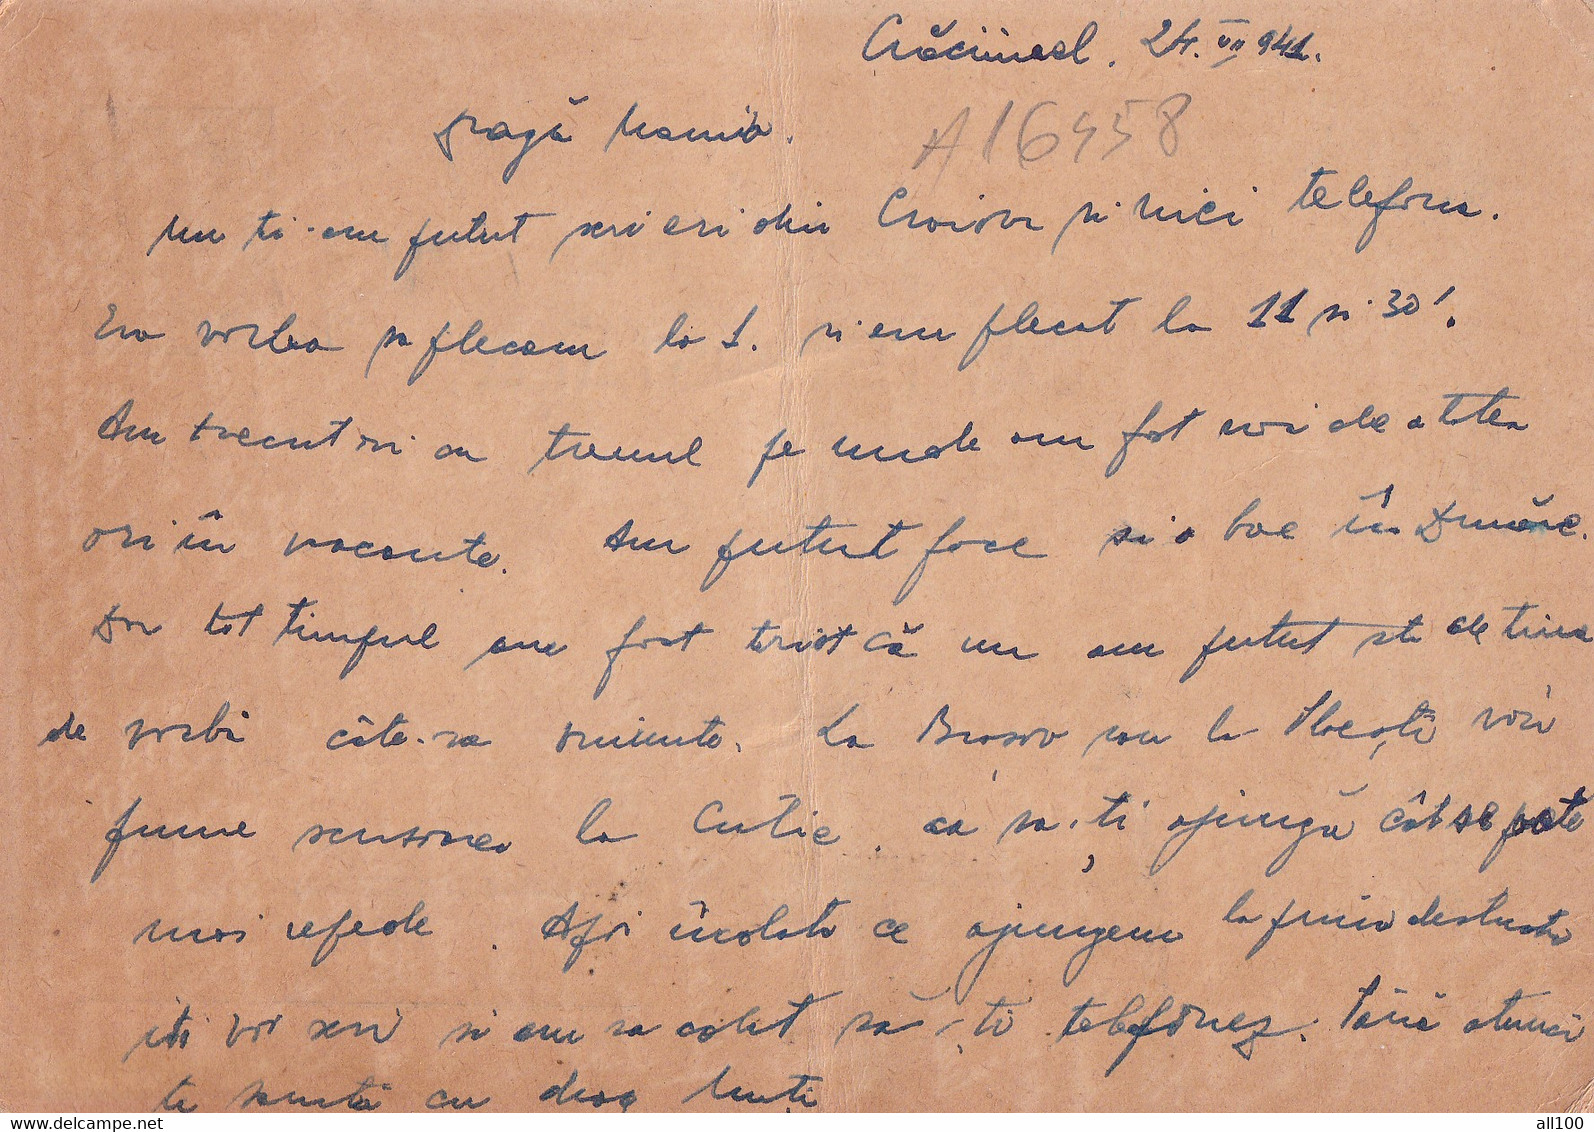 Crăciunel. 24. VII 941.
A16458
Dragă Mamia.
Nu ti-am putut scri eri din Craiova si nici telefona.
Era vorba sa plecam la 1. si am plecat la 11 si 30'.
Am trecut ori cu trenul pe unde am fost noi de atatea
ori în vacante. Am putut face si o bae în Dunăre.
Dar tot timpul am fost trist că nu am putut sta de tine
de vorbi câte-va minute. La Brasov sau la Ploești voi
pune scrisorea la Cutie, ca sa-ți ajungă cât se poate
mai repede. Apoi îndata ce ajungem la prima destinatie
iti voi scri si am sa caut să-ți telefonez. Până atunci
te saruta cu drag
delcampe.net
all100